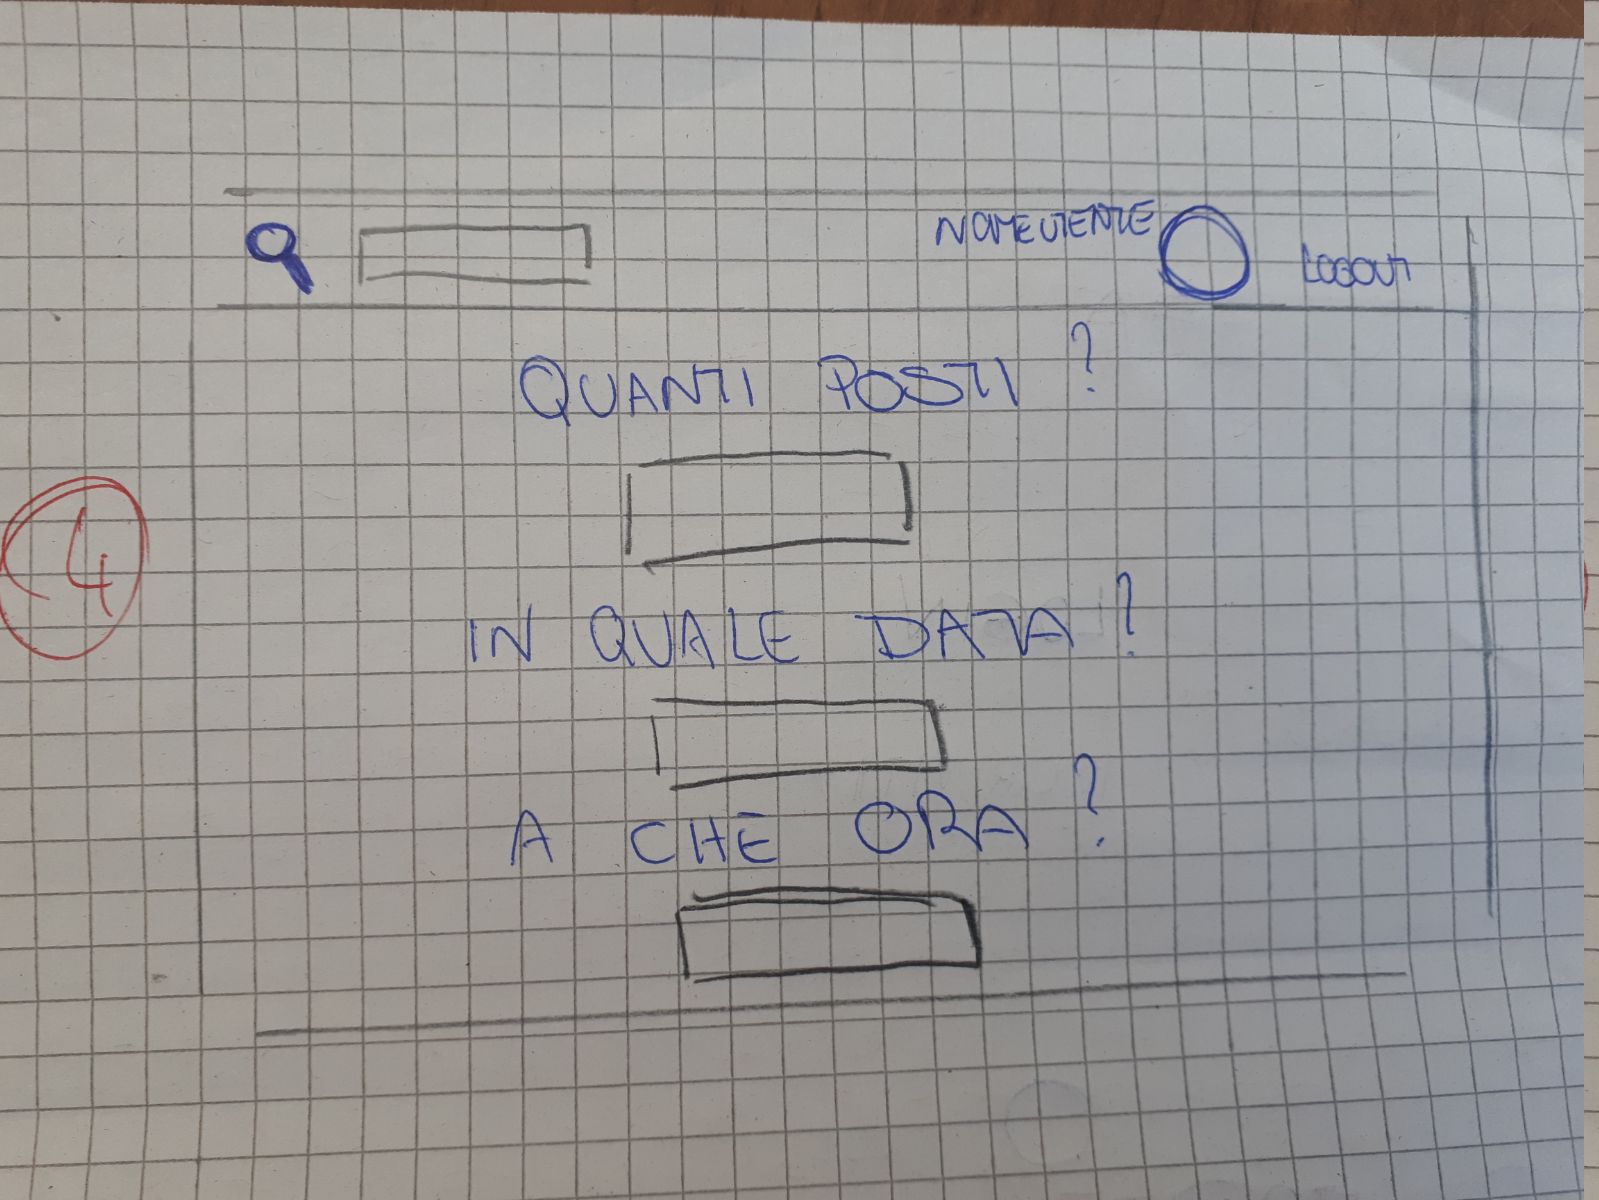 NOMEUTENTE
LOGOUT
QUANTI POSTI ?
4
IN QUALE DATA ?
A CHE ORA ?